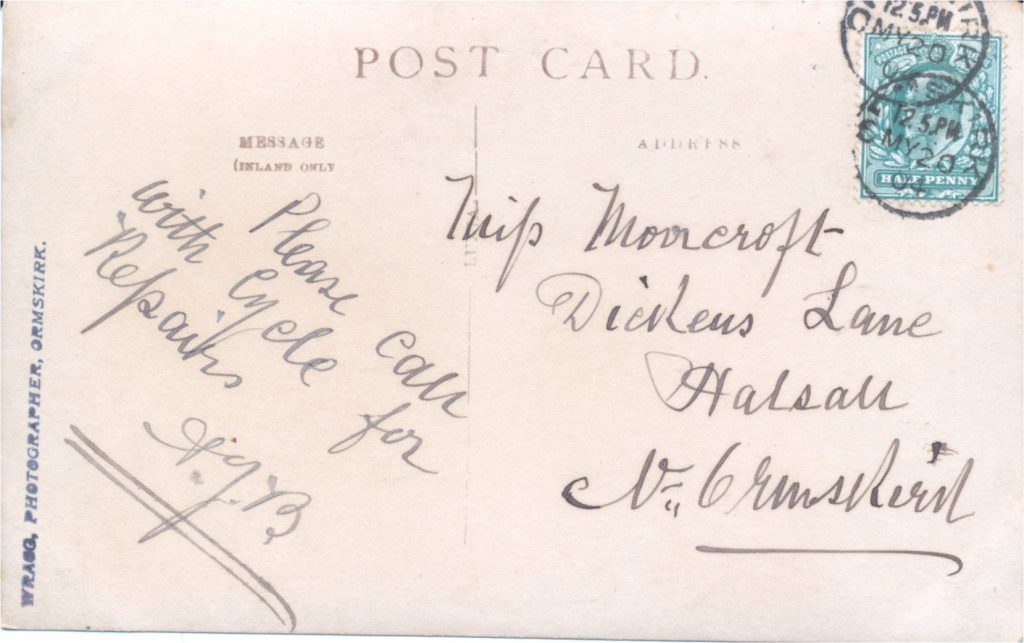 POST CARD.
MESSAGE
(INLAND ONLY
ADDRESS
Please call
with Cycle for
Repairs
Miss Moorcroft
Dickens Lane
Halsall
Nr Ormskirk
WRAGG, PHOTOGRAPHER, ORMSKIRK.
POSTAGE
HALF PENNY
12.5.PM
MY 20
ORMSKIRK
12.5.PM
MY 20
04